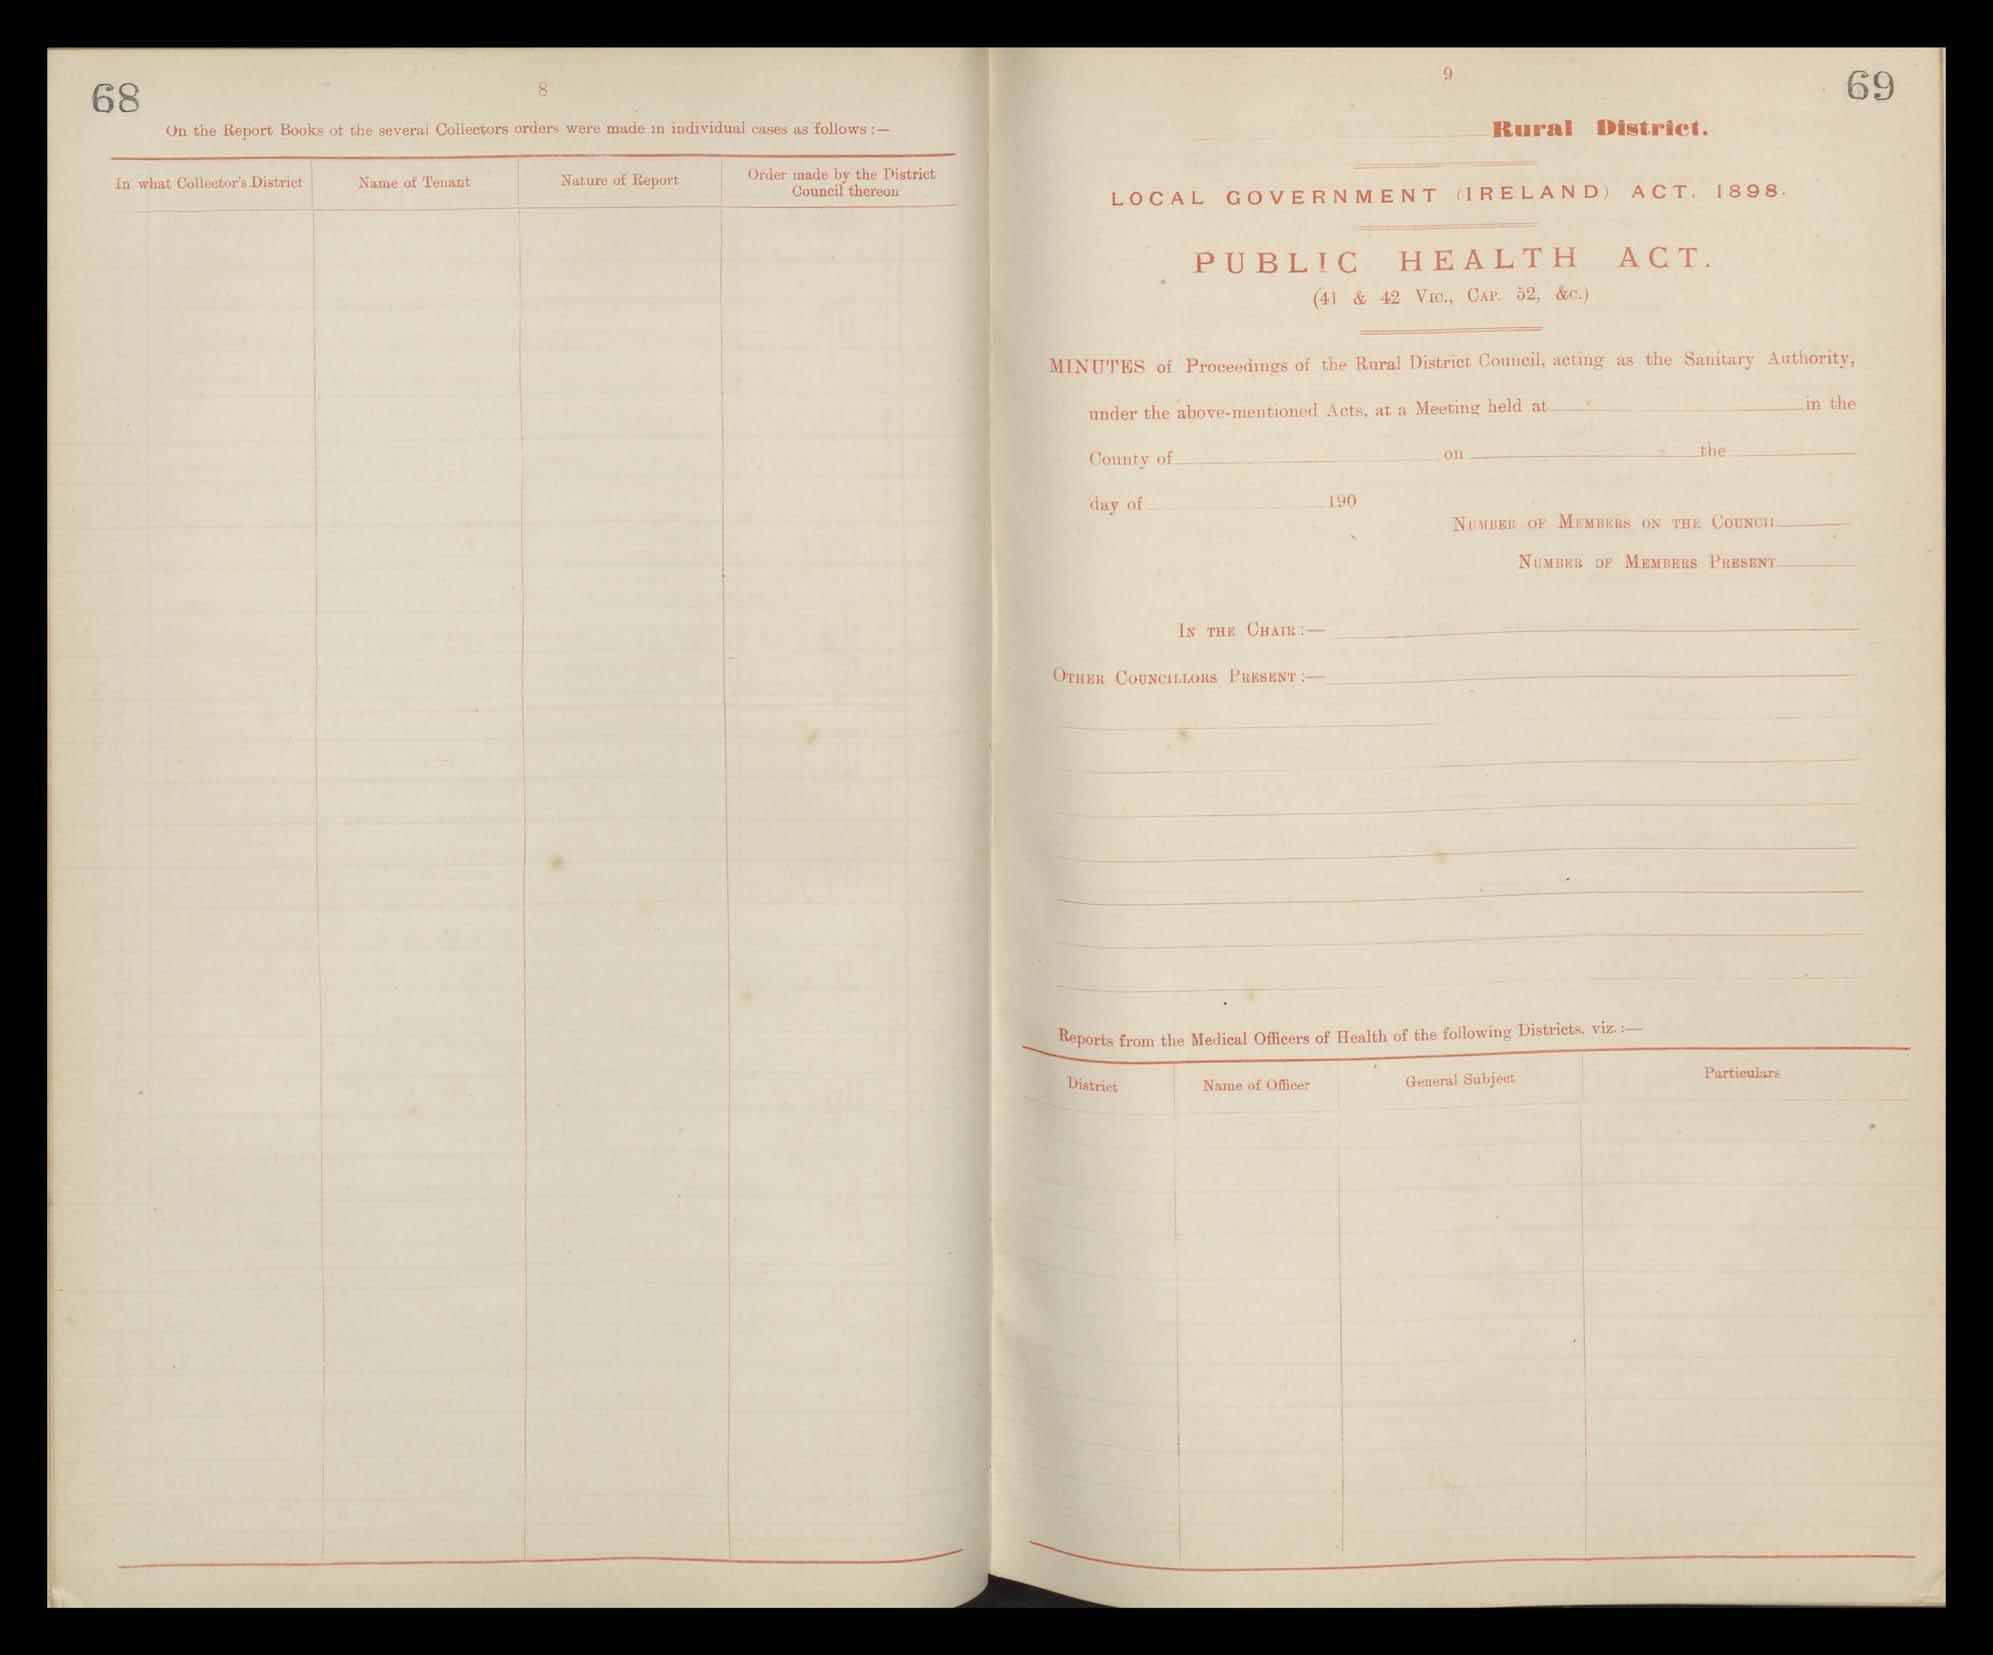 68
8
On the Report Books of the several Collectors orders were made in individual cases as follows :—
In what Collector's District
Name of Tenant
Nature of Report
Order made by the District
Council thereon
9
69
Rural District.
LOCAL GOVERNMENT (IRELAND) ACT, 1898.
PUBLIC HEALTH ACT.
(41 & 42 Vic., Cap. 52, &c.)
MINUTES of Proceedings of the Rural District Council, acting as the Sanitary Authority,
under the above-mentioned Acts, at a Meeting held at in the
County of on the
day of 190
Number of Members on the Council
Number of Members Present
In the Chair :—
Other Councillors Present :—
Reports from the Medical Officers of Health of the following Districts, viz. :—
District
Name of Officer
General Subject
Particulars